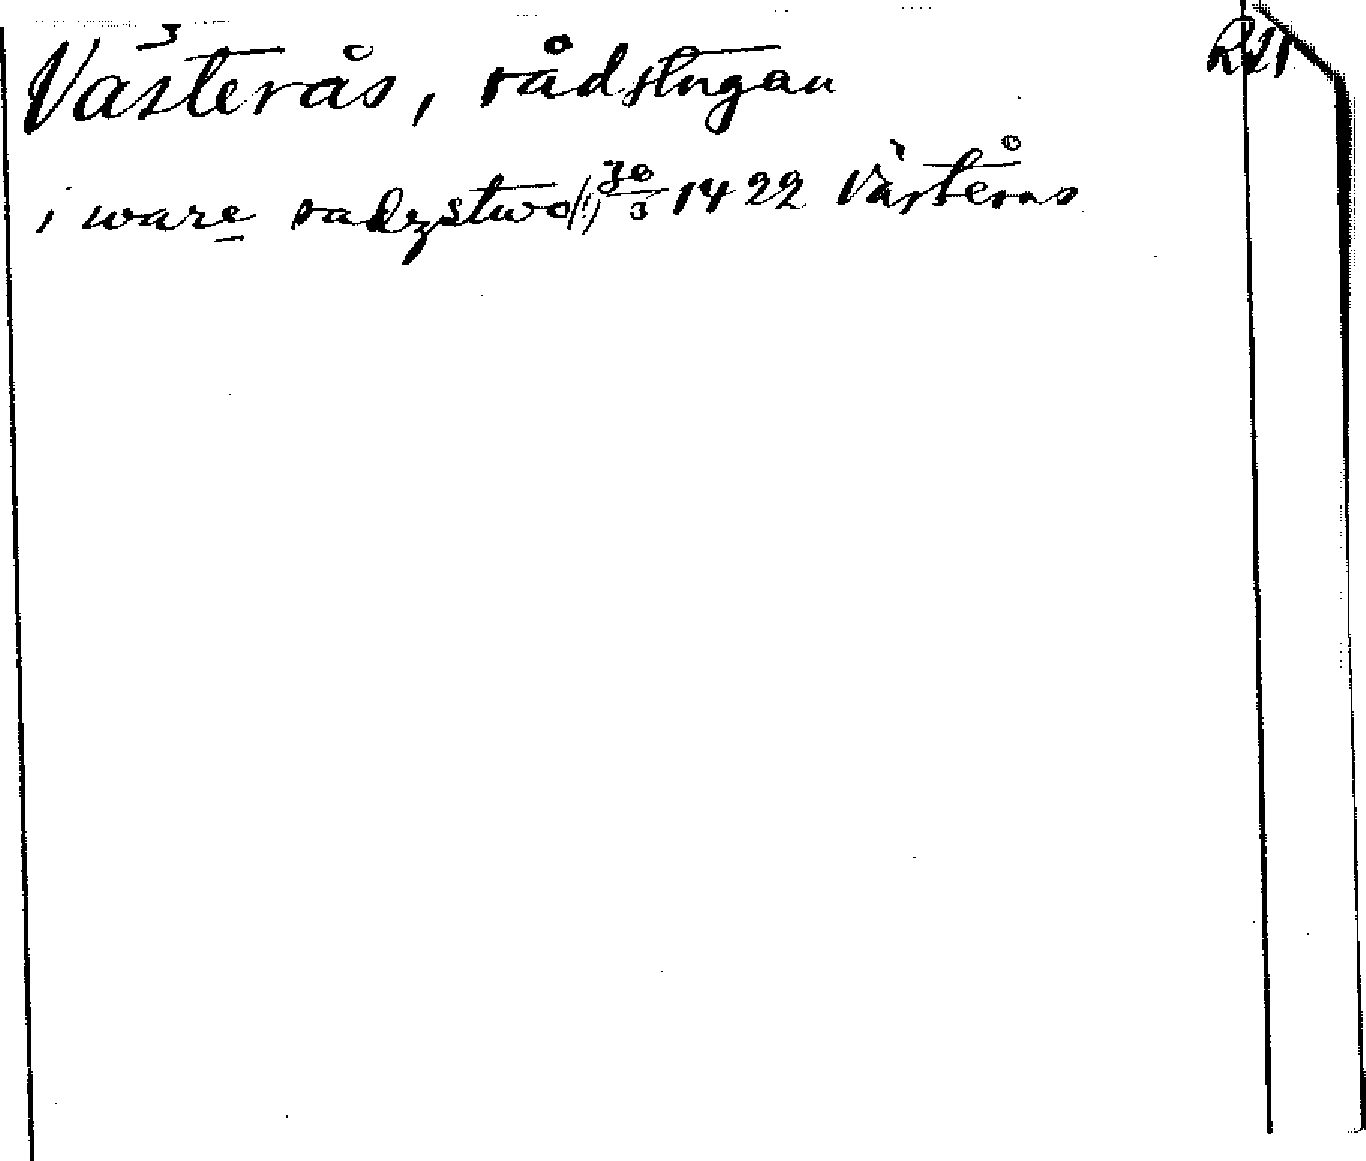 Västerås, rådstugan RA
i ware radzstwo (!) 30/3 1422 Västerås